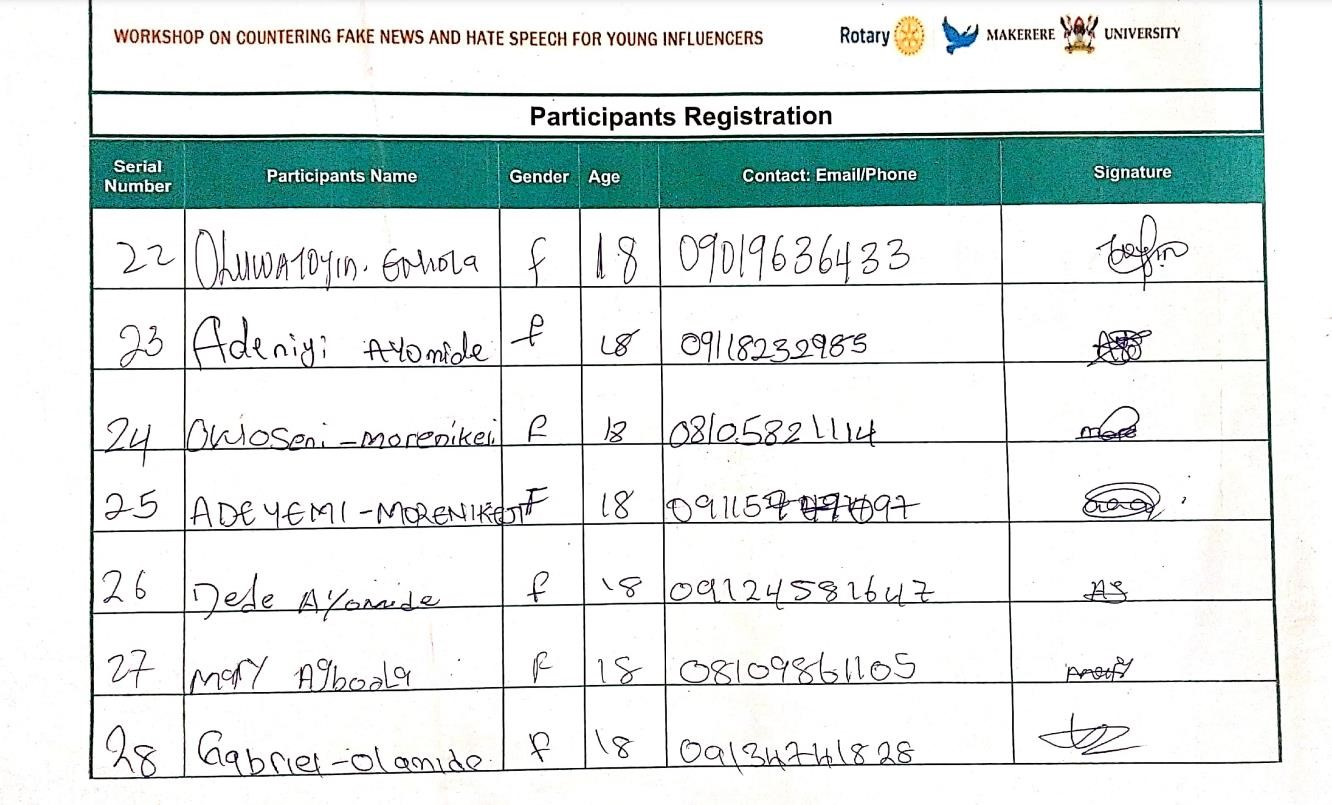 WORKSHOP ON COUNTERING FAKE NEWS AND HATE SPEECH FOR YOUNG INFLUENCERS Rotary MAKERERE UNIVERSITY
Participants Registration
Serial Number Participants Name Gender Age Contact: Email/Phone Signature
22 Oluwatoyin. f 18 09019636433
23 Adeniyi Ayomide f 18 09118232985
24 Owoseni - morenikeji f 18 08105821114 more
25 ADEYEMI - MORENIKEJI F 18
26 Dede Ayomide f 18 09124581647 AJ
27 Mary Agboola F 18 08109861105 mary
28 Gabriel - olamide f 18 09134741828